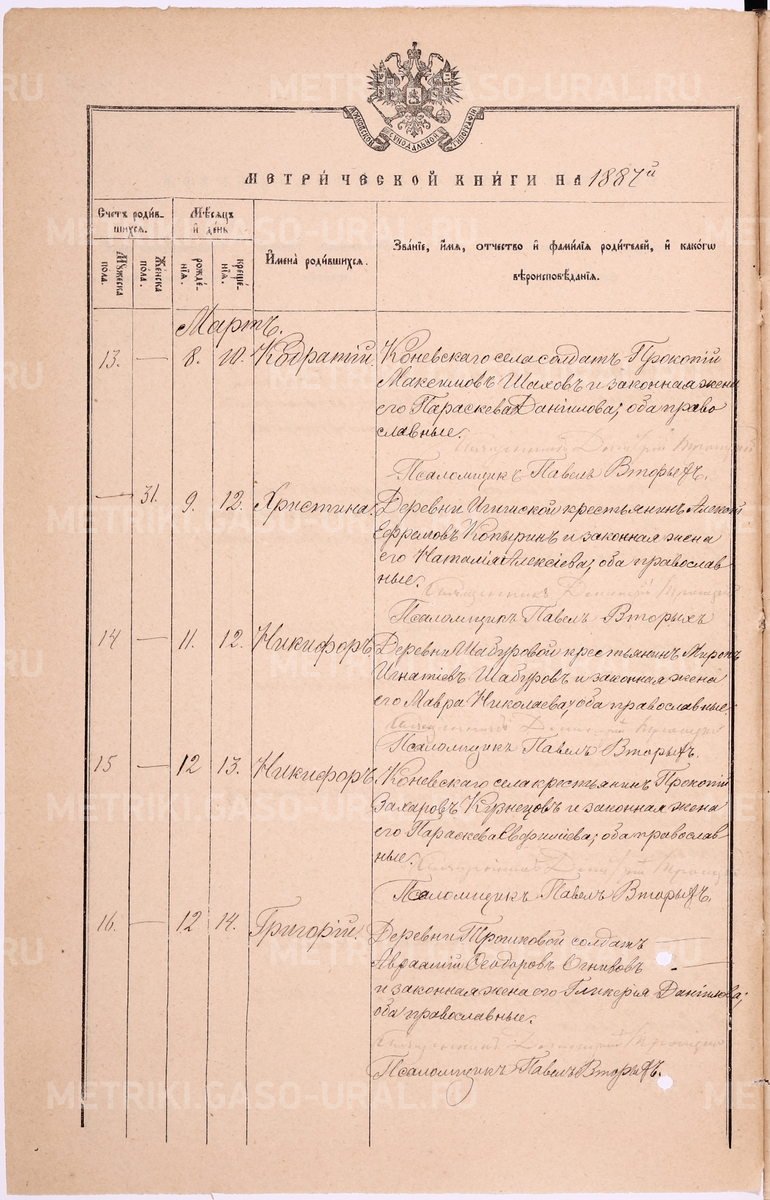 METRIKI.GASO-URAL.RU
МОСКОВСКОЙ СѴНОДАЛЬНОЙ ТИПОГРАФІИ
МЕТРИ́ЧЕСКОЙ КНИ́ГИ НА 1887й
Счетъ роди́вшихся.
Мꙋжеска пола.
Же́нска пола.
Мѣсяцъ и де́нь
рожде́нія.
креще́нія.
И҆мена̀ роди́вшихся.
Зва́ніе, и҆́мя, ѻ҆́тчество и҆ фами́лія роди́телей, и҆ како́гѡ
вѣроисповѣ́данія.
Мартъ.
13. — 8. 10. Кодратій. Коневскаго села солдатъ Прокопій
Максимовъ Шаховъ и законная жена
его Параскева Данiилова; оба право
славные.
Псаломщикъ Павелъ Вторыхъ.
— 31. 9. 12. Христина. Деревни крестьянинъ Алексѣй
Ефремовъ Копыринъ и законная жена
его Наталія Алексіева; оба православ
ные.
Священникъ
Псаломщикъ Павелъ Вторыхъ
14 — 11. 12. Никифоръ. Деревни Шабуровой крестьянинъ Миронъ
Игнатіевъ Шабуровъ и законная жена
его Мавра Николаева; оба православные.
Псаломщикъ Павелъ Вторыхъ.
15 — 12 13. Никифоръ. Коневскаго села крестьянинъ Прокопій
Захаровъ Кузнецовъ и законная жена
его Параскева Евфиміева; оба православ
ные.
Псаломщикъ Павелъ Вторыхъ.
16. — 12 14. Григорій. Деревни солдатъ
Авраамій Ѳеодоровъ Огнивовъ
и законная жена его Гликерія Даніилова;
оба православные.
Псаломщикъ Павелъ Вторыхъ.